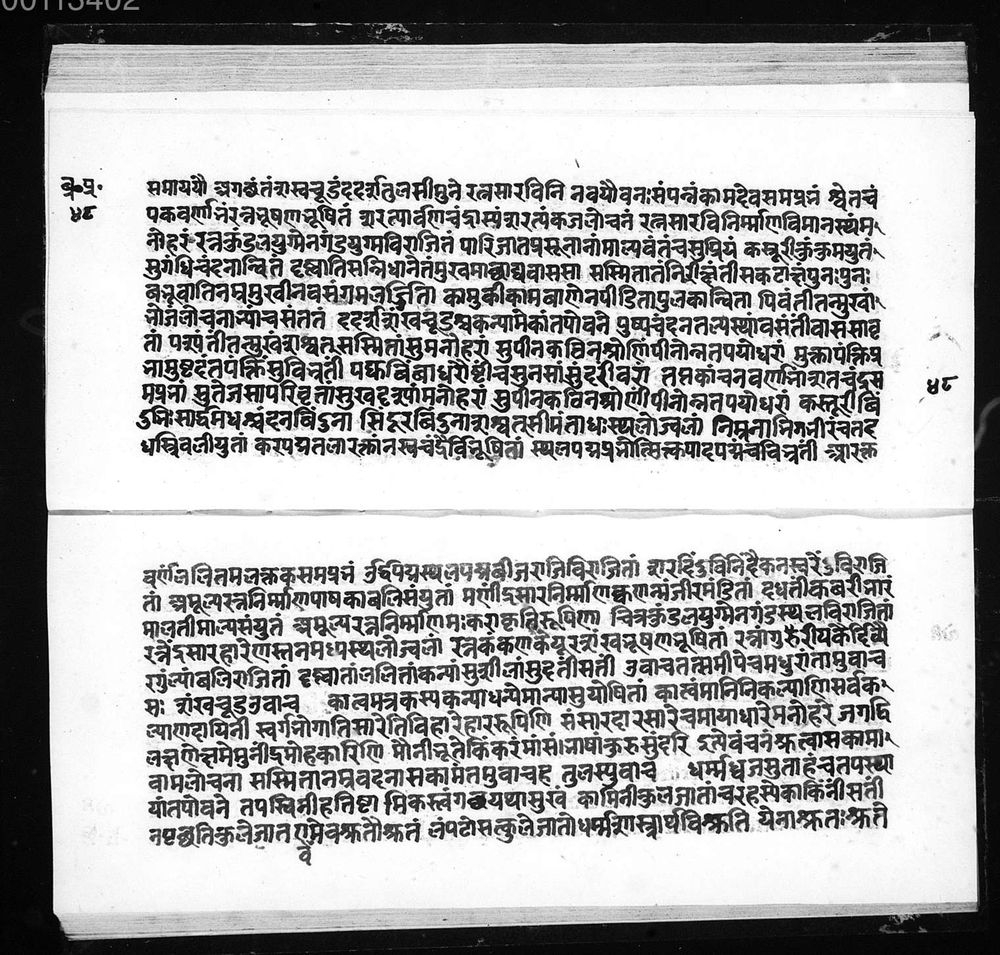 00113402
ब्र॰ प्र॰
४८
समाययौ आगछंतंशंखचूडंददर्शतुलसीमुने रत्नसारविनि नवयौवनःसंपन्नंकामदेवसमप्रभं श्वेतचं
पकवर्णाभंरत्नभूषणभूषितं शरत्पार्वणचंद्रास्यंशरत्पंकजलोचनं रत्नसारविनिर्म्माणविमानस्थंम
नोहरं रत्नकुंडलयुग्मेनगंडयुग्मविराजितं पारिजातप्रसूनानांमाल्यवंतंचसुप्रियं कस्तूरीकुंकुमयुतं
सुगंधिचंदनान्वितं दृष्ट्वातिसन्निधानेतंमुखमाछाद्यवाससा सस्मितातंनिरीक्षंतीसकटाक्षंपुनःपुनः
बभूवातिनम्रमुखीनवसंगमलज्जिता कामुकीकामबाणेनपीडितापुलकान्विता पिबंतीतन्मुखां
भोजंलोचनाभ्यांचसंततं ददर्शशंखचूडश्चकन्यामेकांतपोवने पुष्पचंदनतल्पस्थांवसंतींवाससावृ
तां पश्यंतींतन्मुखंशश्वत्सस्मितांसुमनोहरां सुपीनकठिनश्रोणिंपीनोन्नतपयोधरां मुक्तापंक्तिप्र
भामुष्टदंतपंक्तिंसुबिभ्रतीं पक्वबिंबाधरौष्ठींचसुनसांसुंदरींवरां तप्तकांचनवर्णाभांशतचंद्रस
मप्रभां सुतेजसापरिवृतांसुखदृश्यांमनोहरां सुपीनकठिनश्रोणींपीनोन्नतपयोधरां कस्तूरीबिं
दुभिःसार्द्धमधश्चंदनबिंदुना सिंदूरबिंदुनाशश्वत्सीमंताधःस्थलोज्वलां निम्ननाभिगभीरंचतद
धस्त्रिवलीयुतां करपद्मतलारक्तांनखचंद्रैर्विभूषितां स्थलपद्मप्रभोत्सिक्तपादपद्मंचबिभ्रतीं आरक्त
४८
वर्णंललितमलक्तकसमप्रभं स्थलपद्मबीजराजिविराजितां शरदिंदुविनिंदैकनखरेंदुविराजि
तां अमूल्यरत्ननिर्म्माणपाषकावलिसंयुतां मणींद्रसारनिर्म्माणक्वणन्मंजीरमंडितां दधतींकबरीभारं
मालतीमाल्यसंयुतं अमूल्यरत्ननिर्म्माणमकराकृतिरूपिणा चित्रकुंडलयुग्मेनगंडस्थलविराजितां
रत्नेंद्रसारहारेणस्तनमध्यस्थलोज्वलां रत्नकंकणकेयूरशंखभूषणभूषितां रत्नांगुरीयकैर्दिव्यै
रंगुल्यावलिराजितां दृष्ट्वातांललितांकन्यांसुशीलांसुदतींसतीं उवाचतत्समीपेचमधुरांतामुवाच
सः शंखचूडउवाच कात्वमत्रकस्यकन्याधन्येमान्यासुयोषितां कात्वंमानिनिकल्याणिसर्वक
ल्याणदायिनी स्वर्गभोगातिसारेतिविहारेहाररूपिणि संसारदारसारेचमायाधारेमनोहरे जगद्वि
मुनींद्रमोहकारिणि मौनीभूतेकिंकरंमांसंभाषांकुरुसुंदरि इत्येवंवचनंश्रुत्वासकामा
वामलोचना सस्मितानम्रवदनासकामंतमुवाचह तुलस्युवाच धर्म्मध्वजसुताहंचतपस्या
यांतपोवने तपस्विनीहतिष्ठामिकस्त्वंगछयथासुखं कामिनींकुलजातांचरहस्येकाकिनींसतीं
नपृछतिकुलेजातएमेवश्रुतौश्रुतं लंपटोसत्कुलेजातोधर्म्मशास्त्रार्थविश्रुति येनाश्रुतःश्रुते
व